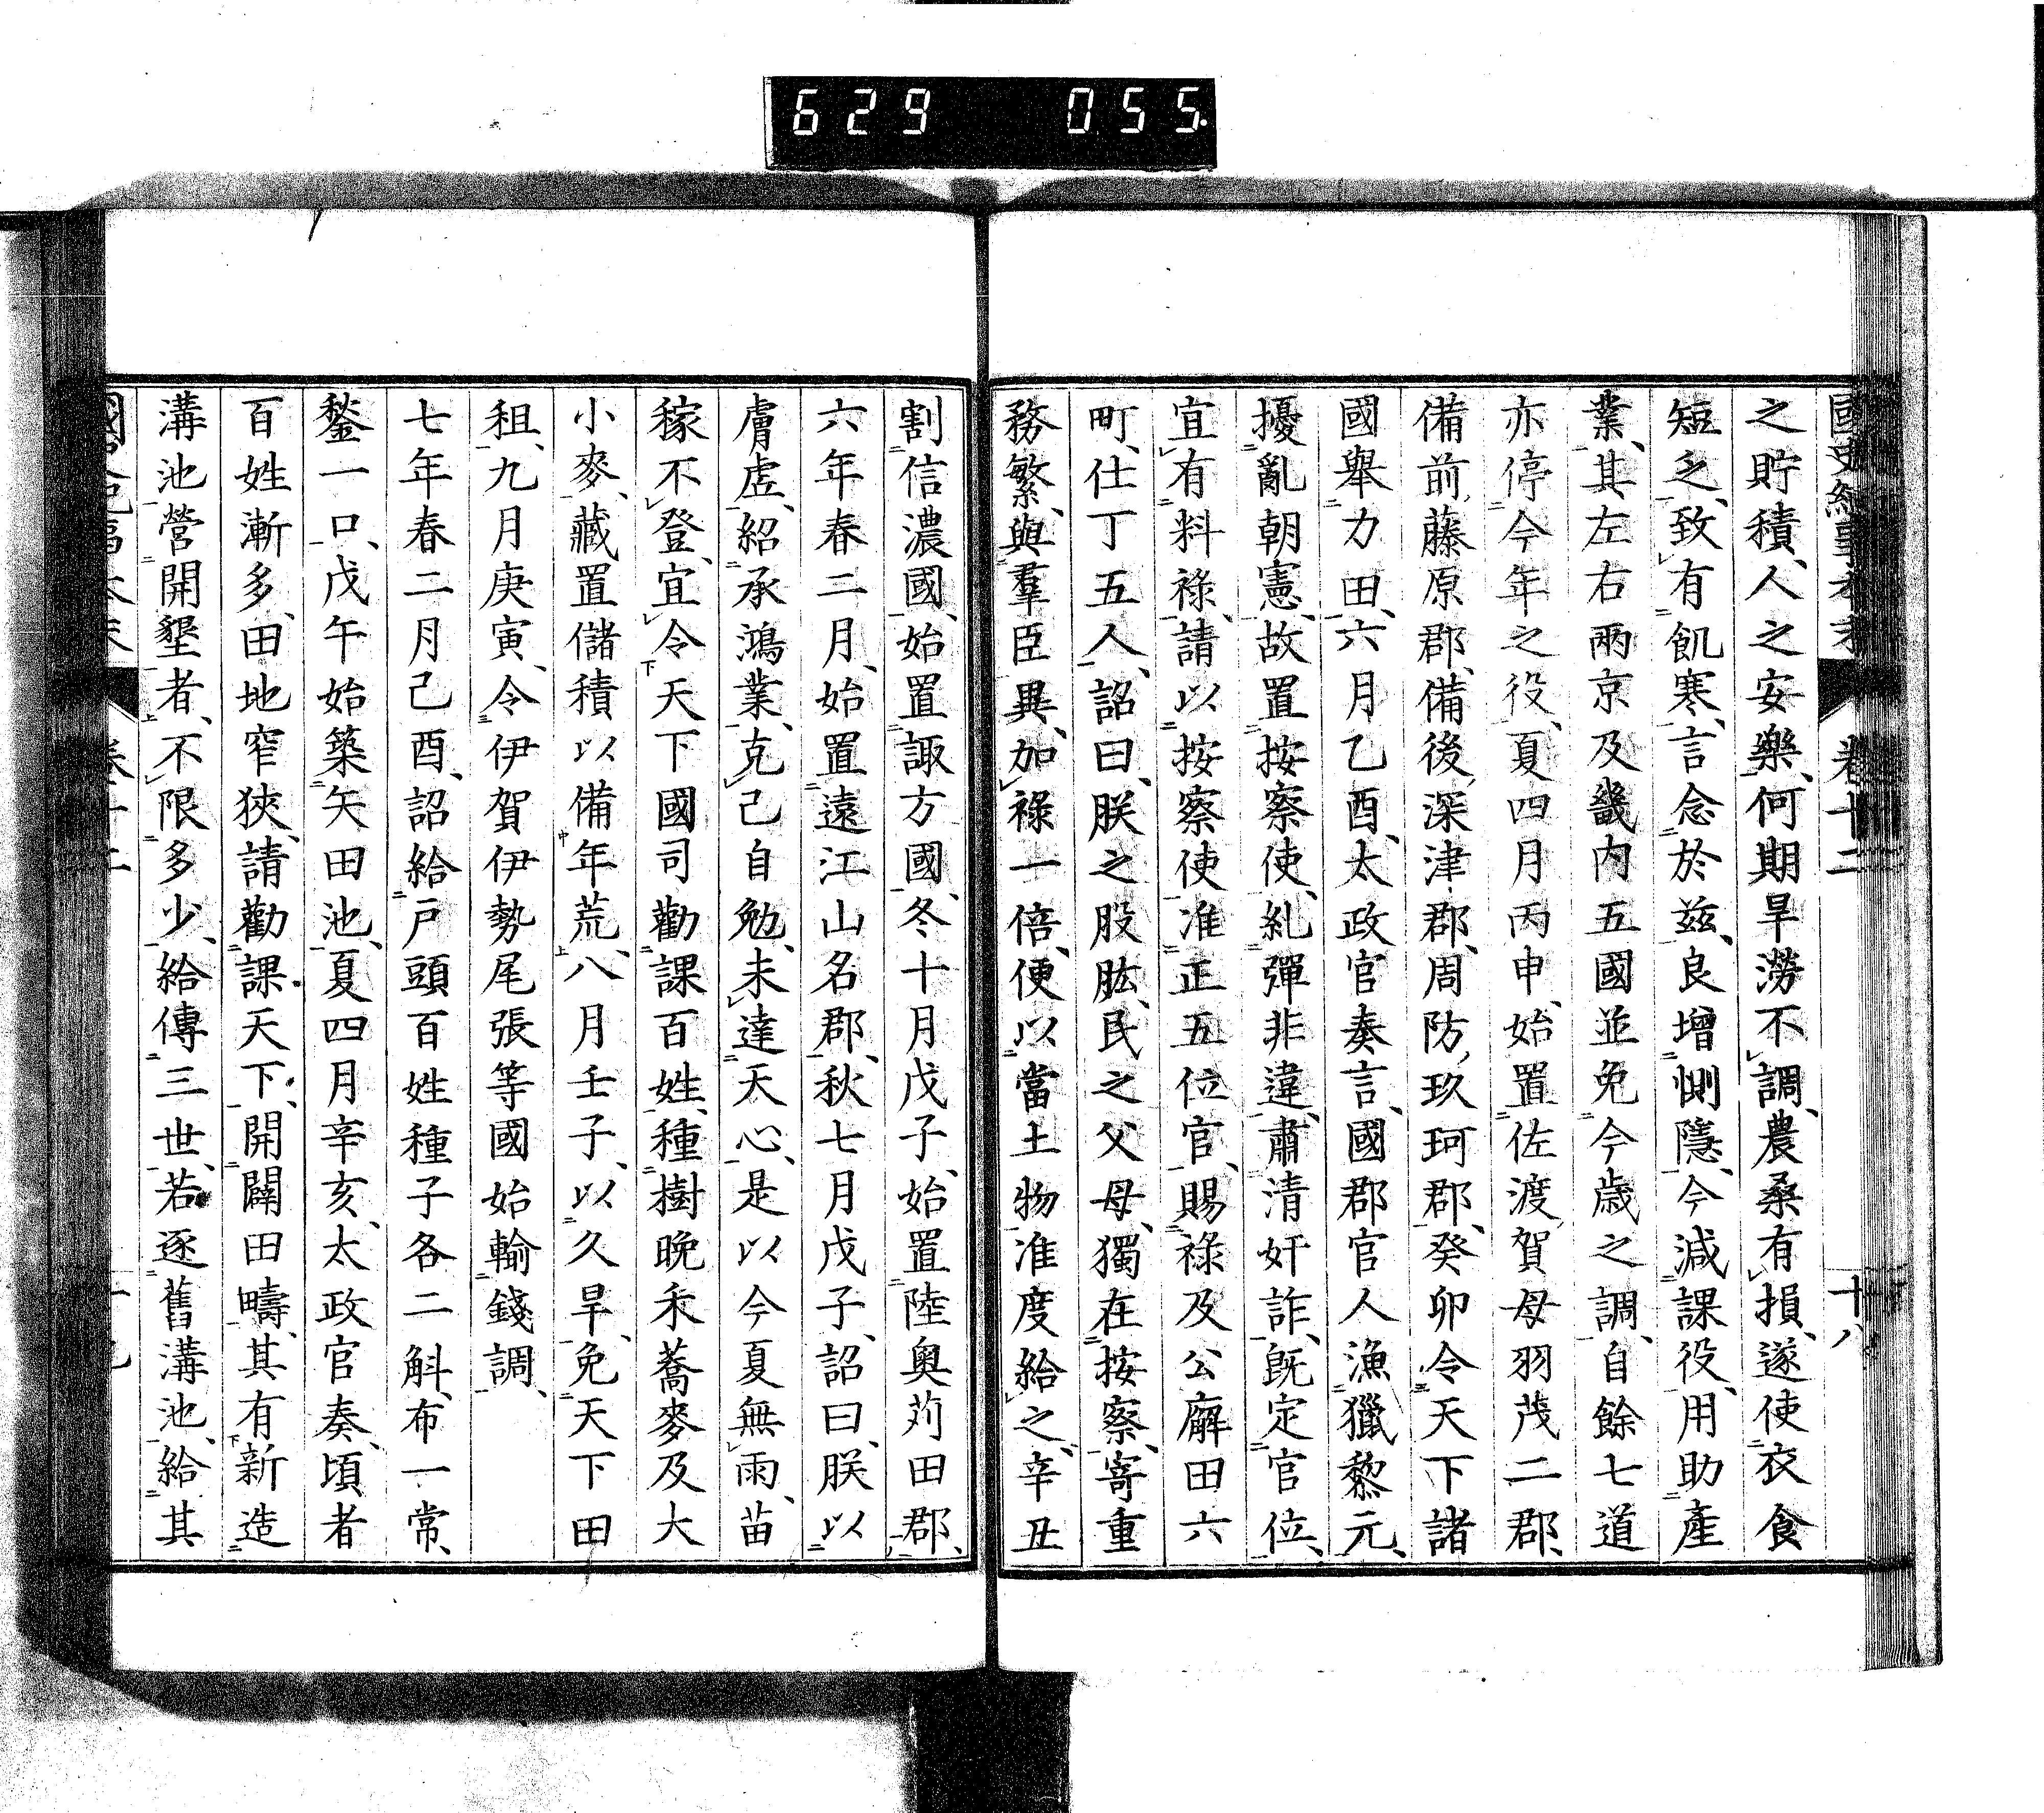 629 055
卷十二 十八
之貯積、人之安樂、何期旱澇不調、農桑有損、遂使衣食
短乏、致有飢寒、言念於玆、良增惻隱、今減課役、用助產
業、其左右兩京及畿内五國並免今歲之調、自餘七道
亦停今年之役、夏四月丙申、始置佐渡賀母羽茂二郡、
備前藤原郡、備後深津郡、周防玖珂郡、癸卯令天下諸
國舉力田、六月乙酉、太政官奏言、國郡官人漁獵黎元、
擾亂朝憲、故置按察使、糺彈非違、肅清奸詐、旣定官位、
宜有料祿、請以按察使准正五位官、賜祿及公廨田六
町、仕丁五人、詔曰、朕之股肱、民之父母、獨在按察、寄重
務繁、與羣臣異、加祿一倍、便以當土物准度給之、辛丑
割信濃國、始置諏方國、冬十月戊子、始置陸奧苅田郡、
六年春二月、始置遠江山名郡、秋七月戊子、詔曰、朕以
膚虛、紹承鴻業、克己自勉、未達天心、是以今夏無雨、苗
稼不登、宜令天下國司勸課百姓、種樹晚禾蕎麥及大
小麥、藏置儲積以備年荒、八月壬子、以久旱、免天下田
租、九月庚寅、令伊賀伊勢尾張等國始輸錢調、
七年春二月己酉、詔給戶頭百姓種子各二斛、布一常、
鍫一口、戊午始築矢田池、夏四月辛亥、太政官奏、頃者
百姓漸多、田地窄狹、請勸課天下、開闢田疇、其有新造
溝池營開墾者、不限多少、給傳三世、若逐舊溝池、給其